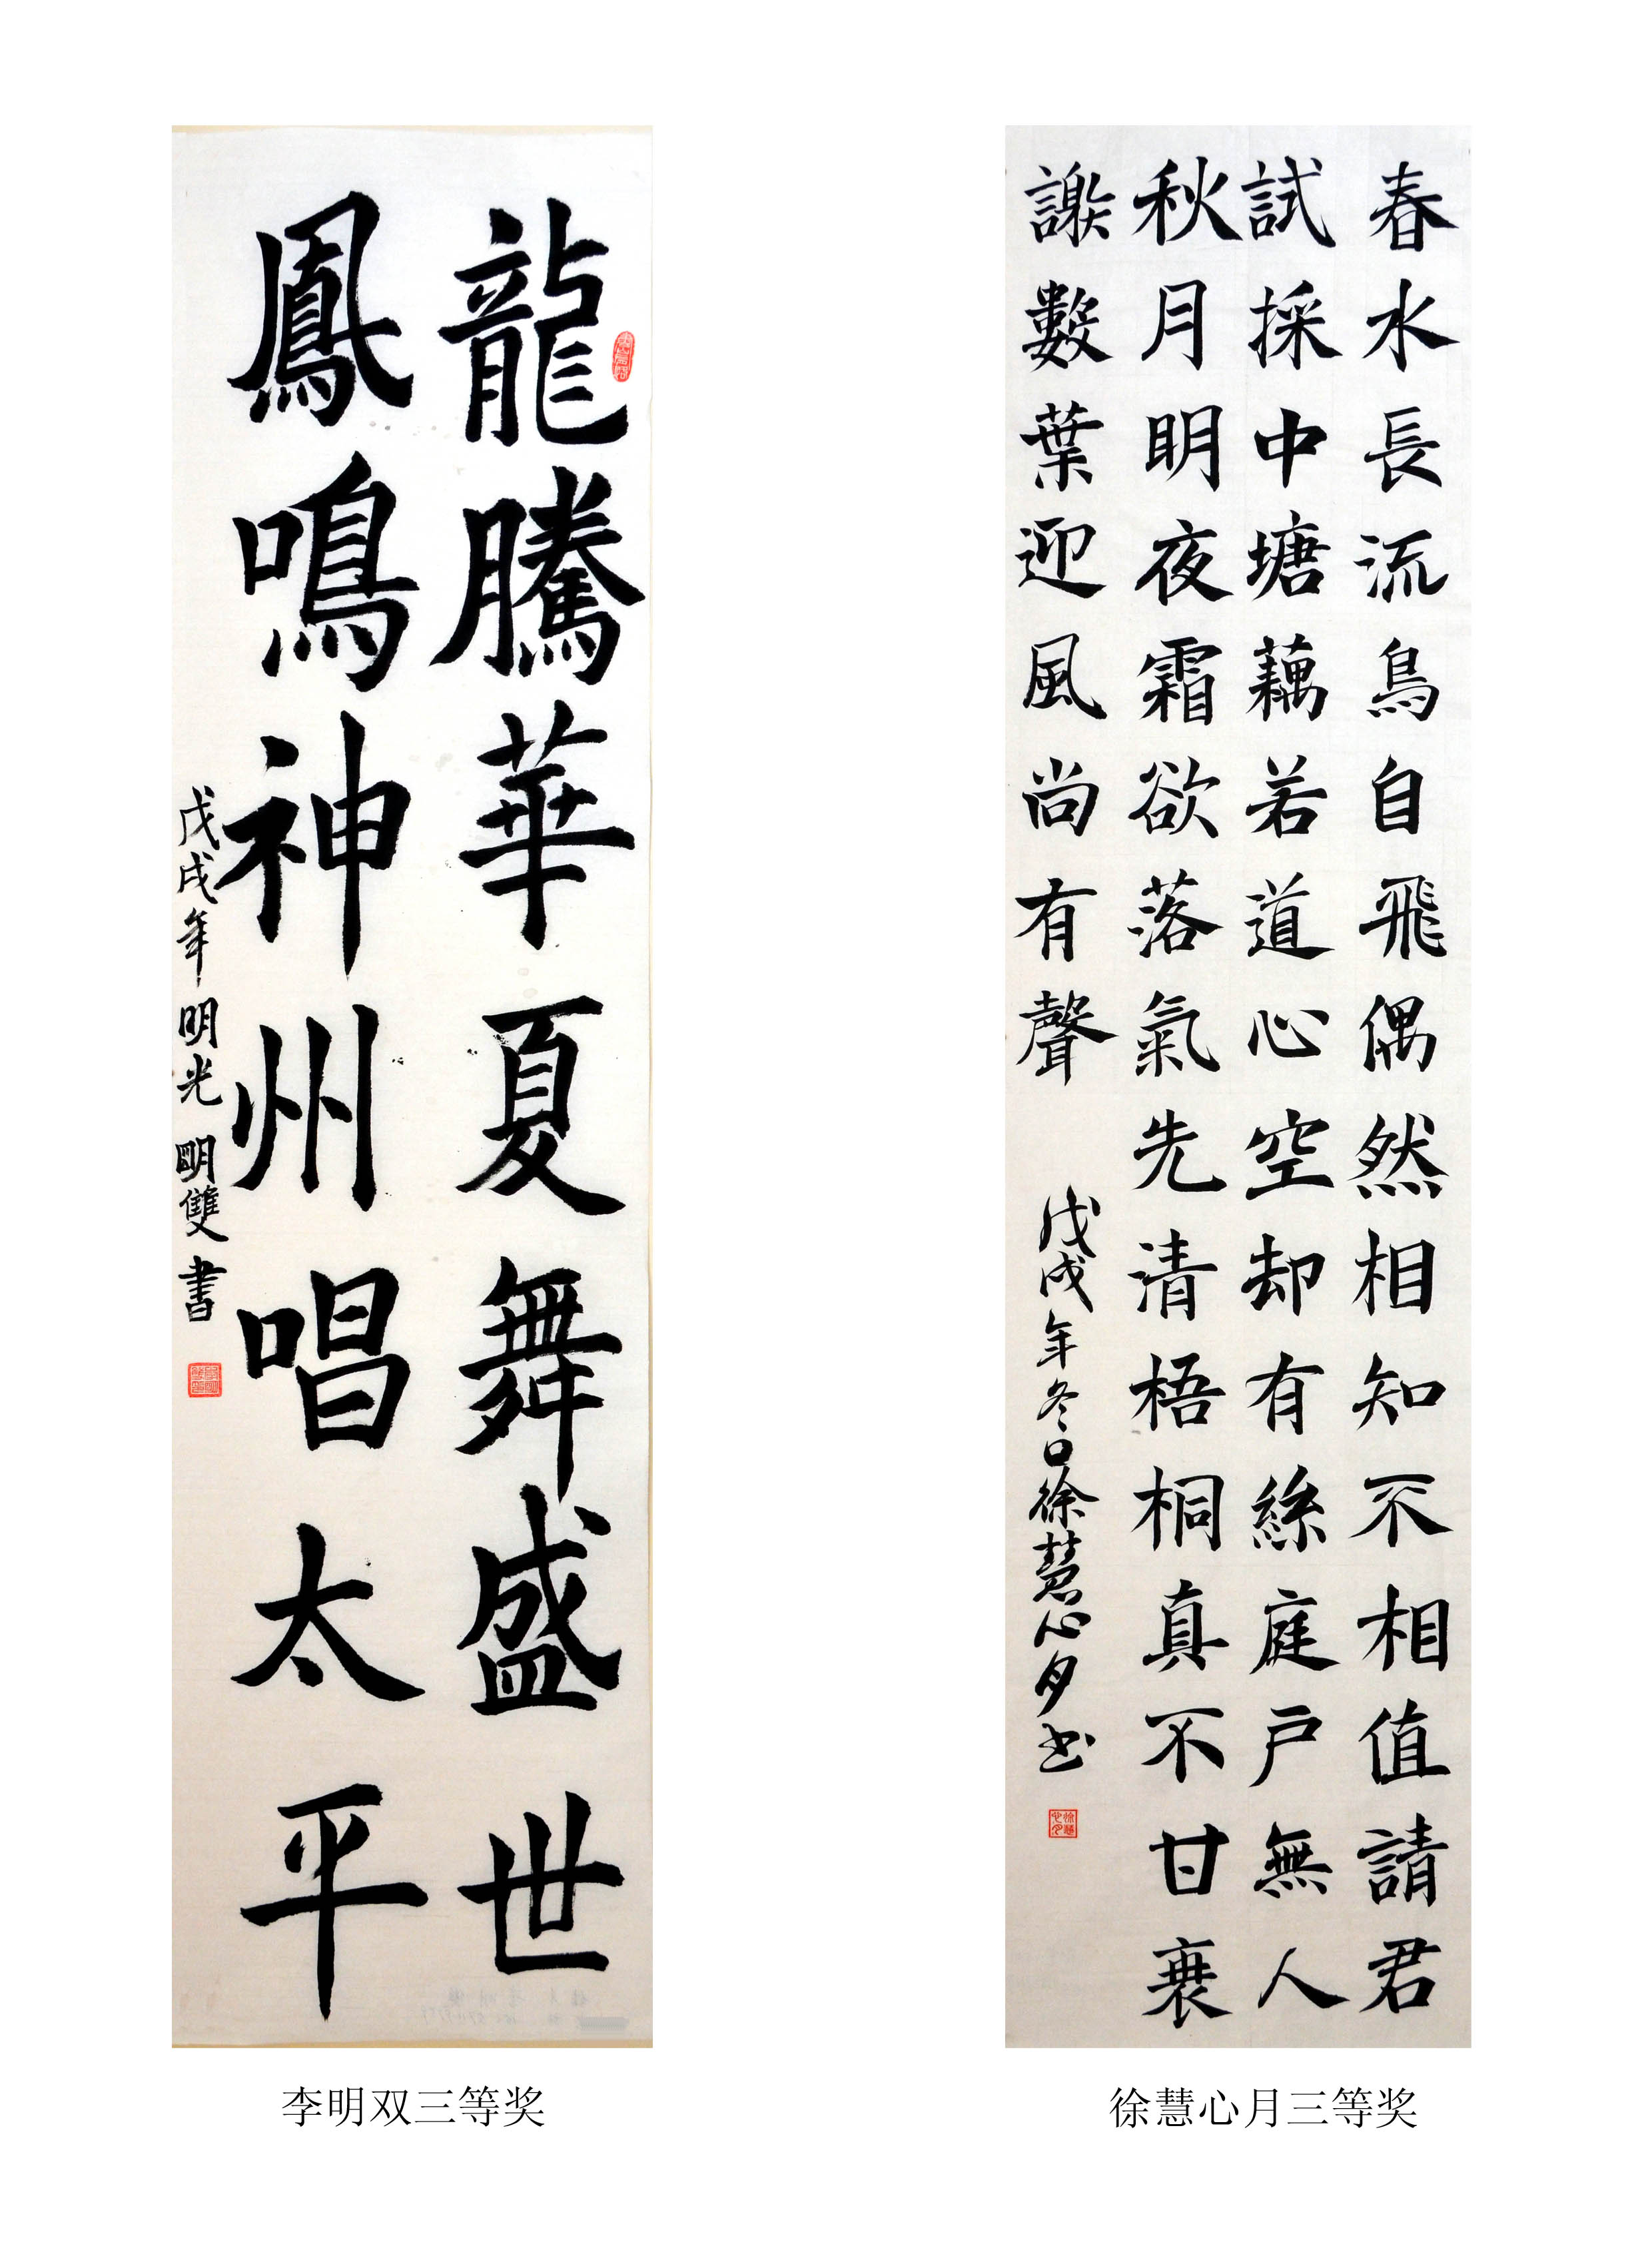 龍騰華夏舞盛世
鳳鳴神州唱太平
戊戌年 明光 明雙書
李明双三等奖
春水長流鳥自飛偶然相知不相值請君
試採中塘藕若道心空却有絲庭戶無人
秋月明夜霜欲落氣先清梧桐真不甘衰
謝數葉迎風尚有聲
戊戌年冬日徐慧心月书
徐慧心月三等奖